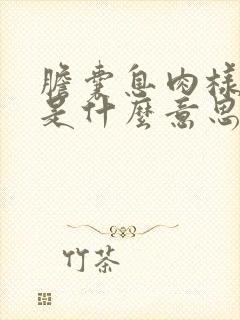 膽囊息肉樣
是什麼意思
竹茶